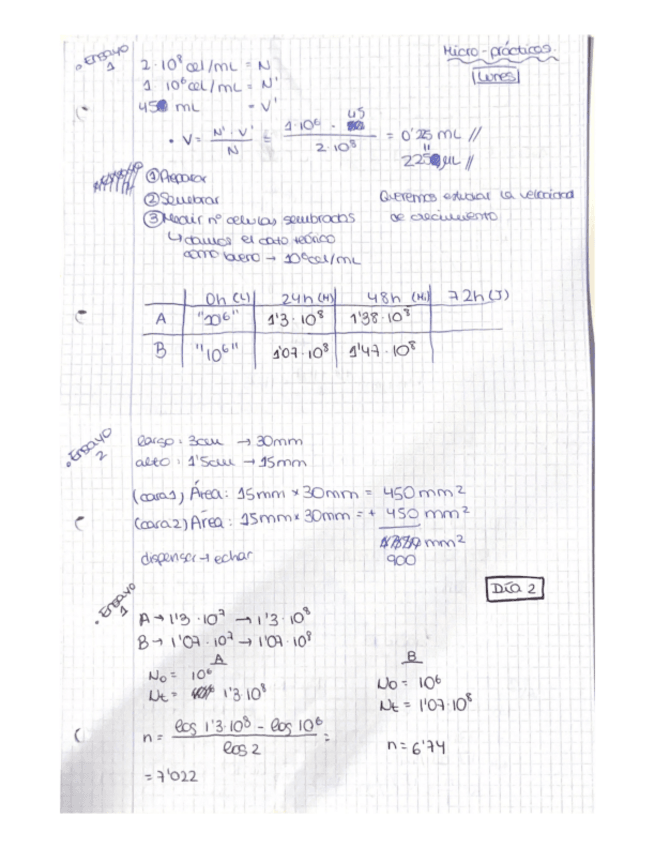 Micro-prácticas.
Lunes
• Ensayo 1
2·10⁸ cel/mL = N
1 10⁶ cel/mL = N'
45 mL = V'
• V = N'·V' / N = 1·10⁶ · 45 / 2·10⁸ = 0'25 mL //
"
225 µL //
① Preparar
② Sembrar
③ Medir nº células sembradas
↳ damos el dato teórico
como bueno → 10⁶ cel/mL
Queremos estudiar la velocidad
de crecimiento
0h (L) 24h (M) 48h (Mi) 72h (J)
A "10⁶" 1'3·10⁸ 1'38·10⁸
B "10⁶" 1'07·10⁸ 1'47·10⁸
• Ensayo 2
largo: 3cm → 30mm
alto: 1'5cm → 15mm
(cara1) Área: 15mm × 30mm = 450mm²
(cara2) Área: 15mm × 30mm = + 450 mm²
mm²
900
dispensar → echar
DÍA 2
• Ensayo 1
A → 1'3·10⁷ → 1'3·10⁸
B → 1'07·10⁷ → 1'07·10⁸
A
N₀ = 10⁶
Nt = 1'3·10⁸
n = log 1'3·10⁸ - log 10⁶ / log 2 =
= 7'022
B
N₀ = 10⁶
Nt = 1'07·10⁸
n = 6'74